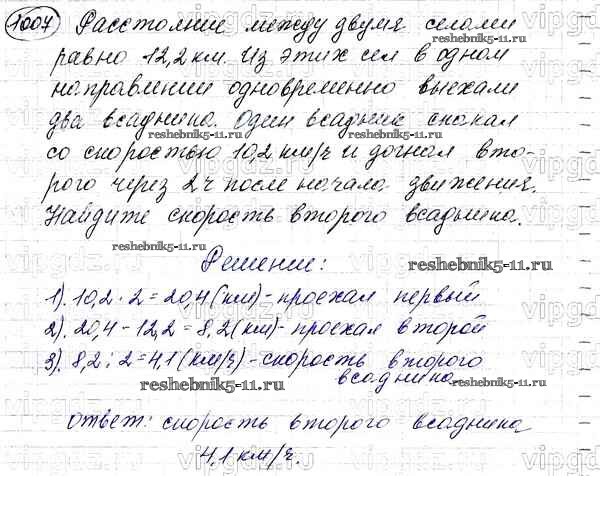 1007 Расстояние между двумя селами
равно 12,2 км. Из этих сел в одном
направлении одновременно выехали
два всадника. Один всадник скакал
reshebnik5-11.ru
со скоростью 10,2 км/ч и догнал вто-
рого через 2 ч после начала движения.
Найдите скорость второго всадника.
reshebnik5-11.ru
Решение:
reshebnik5-11.ru
1). 10,2 · 2 = 20,4 (км) - проехал первый
2). 20,4 - 12,2 = 8,2 (км) - проехал второй
3). 8,2 : 2 = 4,1 (км/ч) - скорость второго
всадника
reshebnik5-11.ru
reshebnik5-11.ru
ответ: скорость второго всадника
4,1 км/ч.